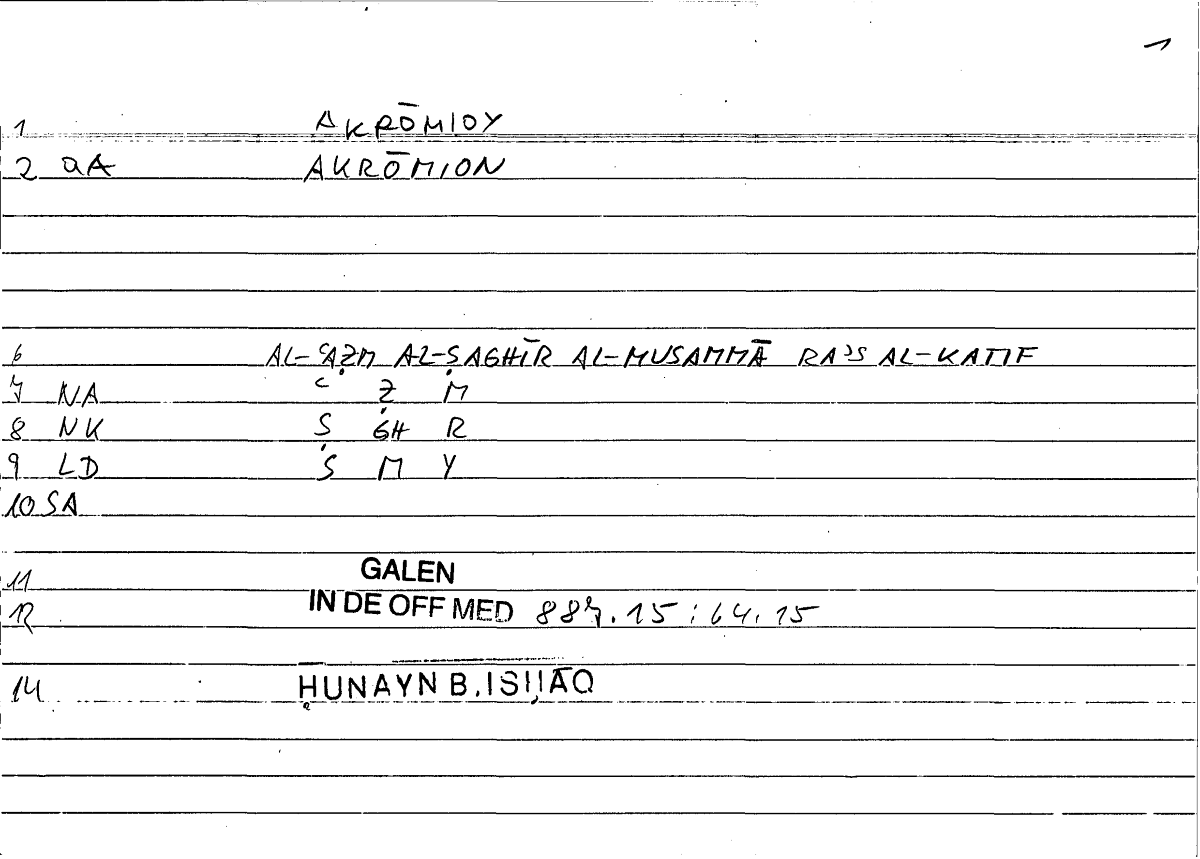 1
1 AKRŌMIOY
2 aA AKRŌMION
6 AL-ʿAẒM AL-ṢAGHĪR AL-MUSAMMĀ RAʾS AL-KATIF
7 NA ʿ Ẓ M
8 NK Ṣ GH R
9 LD Ṣ M Y
10 SA
11 GALEN
12 IN DE OFF MED 887.15 : 64.15
14 ḤUNAYN B. ISḤĀQ